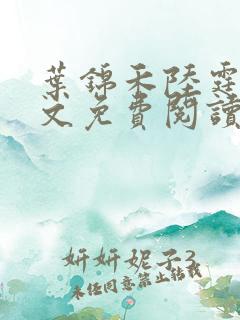 葉錦禾陸霆
文免費閱讀
妍妍妮子3
未经同意禁止转载